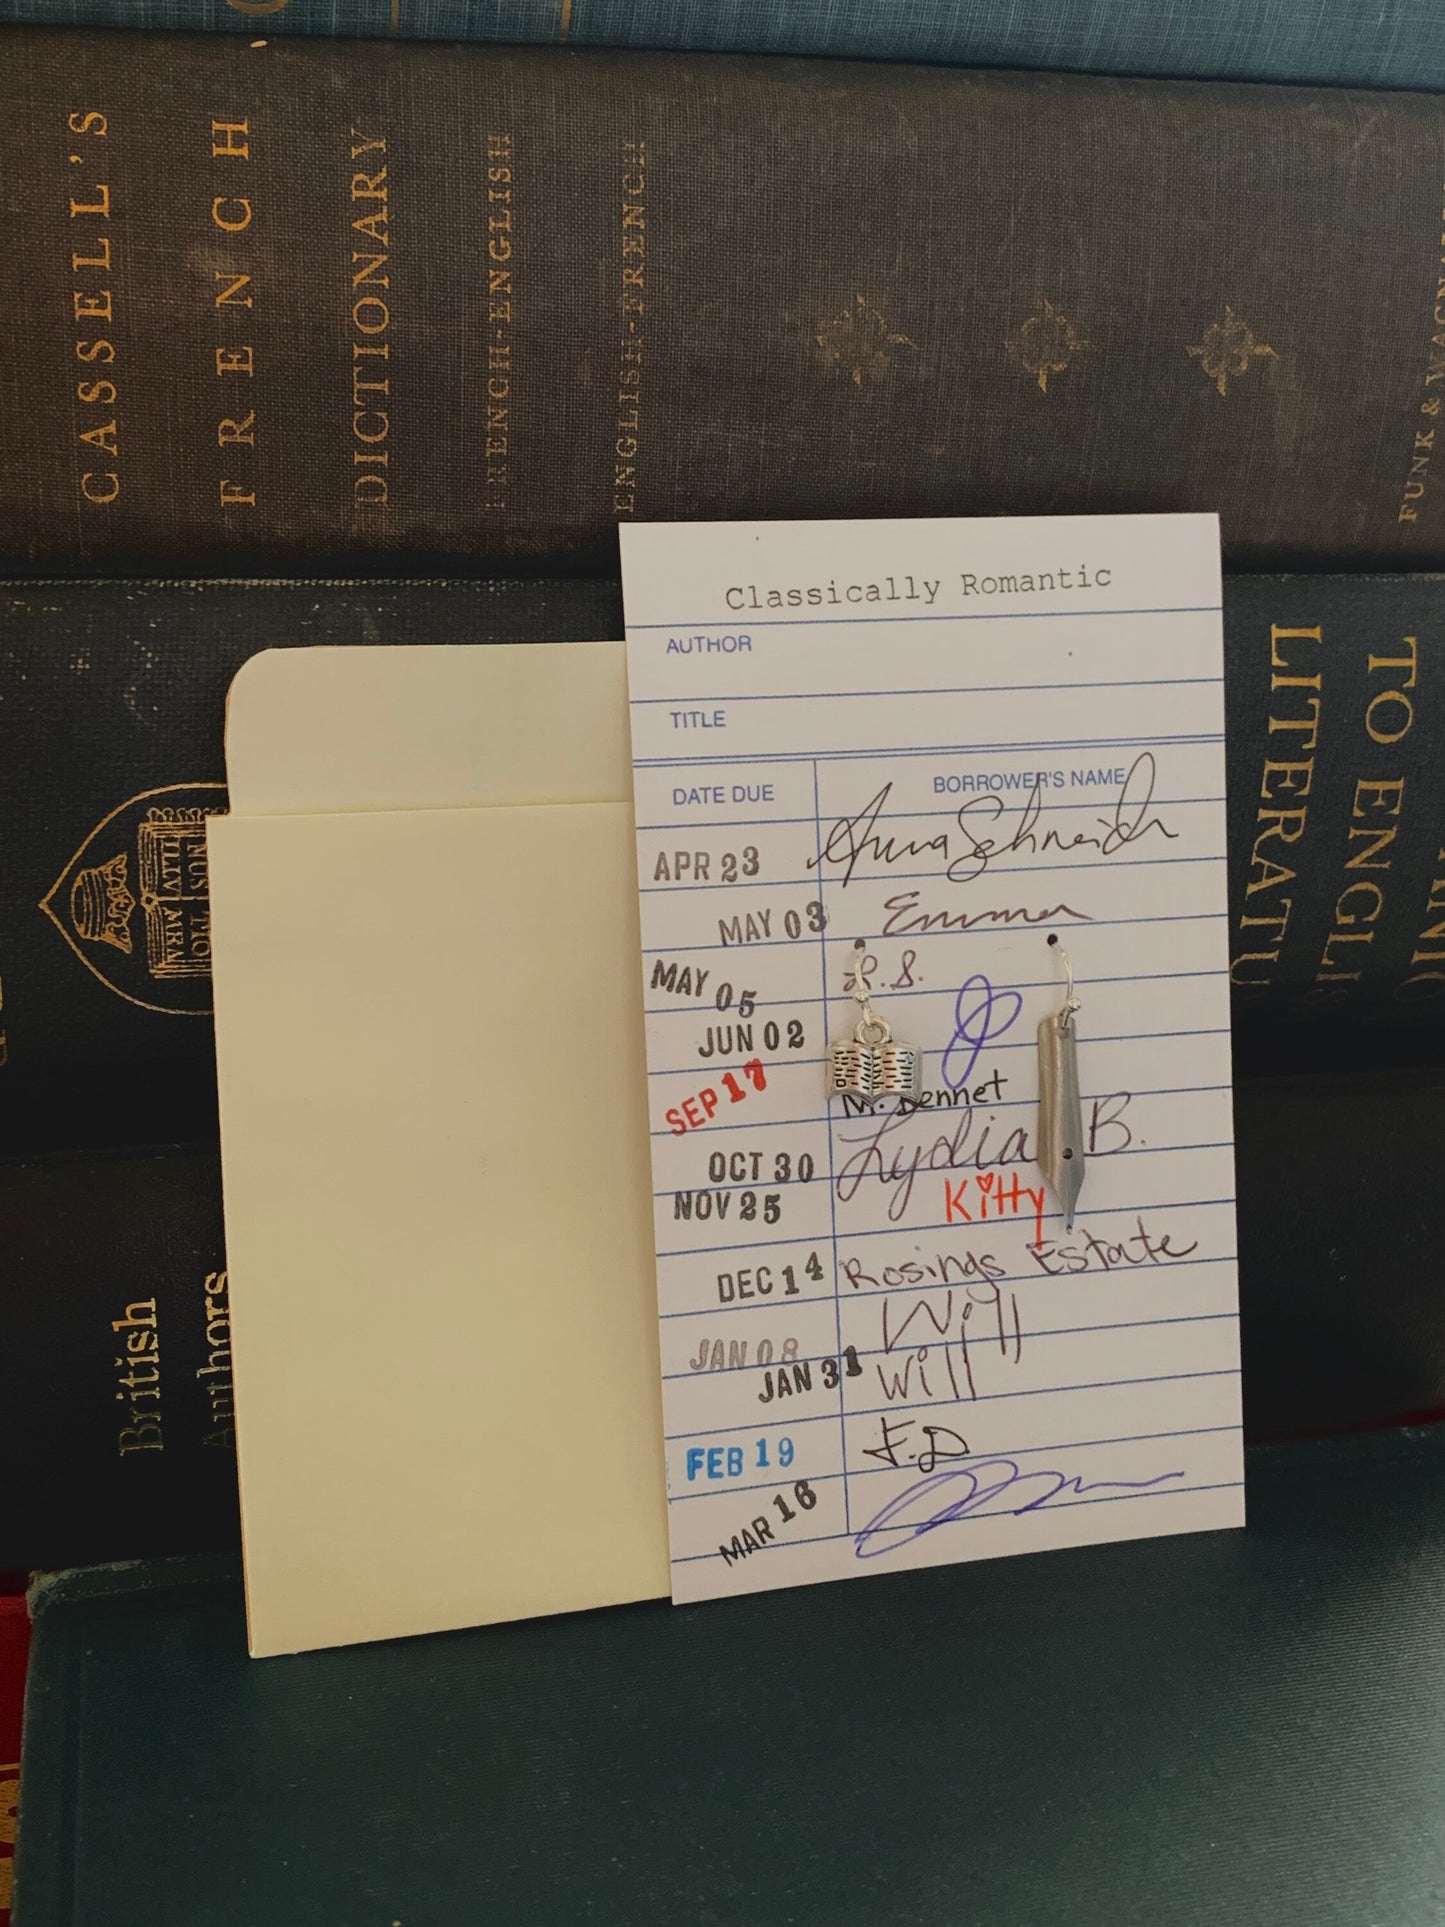 CASSELL'S
FRENCH
DICTIONARY
FRENCH-ENGLISH
ENGLISH-FRENCH
FUNK &
Classically Romantic
AUTHOR
TITLE
DATE DUE BORROWER'S NAME
APR 23 Anna
MAY 03 Emma
MAY 05 S.
JUN 02
SEP 17 M. Bennet
OCT 30 Lydia B.
NOV 25 Kitty
DEC 14 Rosings Estate
JAN 08 Will
JAN 31 Will
FEB 19 F.D.
MAR 16
TO
British
Authors